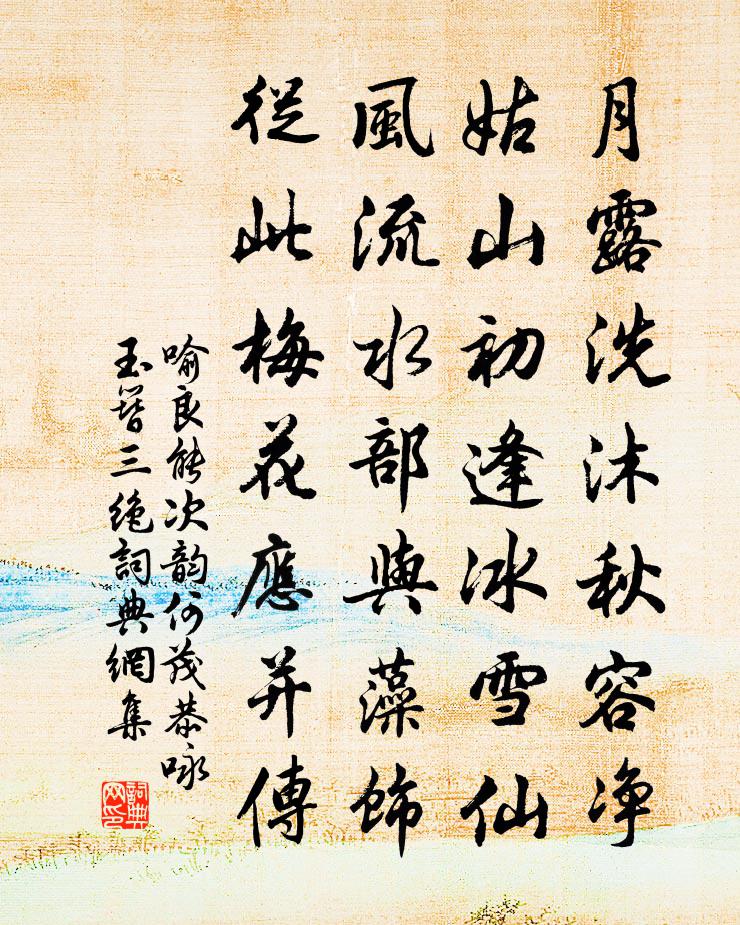 月露洗沐秋容净
姑山初逢冰雪仙
風流水部與藻飾
從此梅花應并傳
喻良能次韵何茂恭咏
玉簪三絶詞典網集
詞典網印